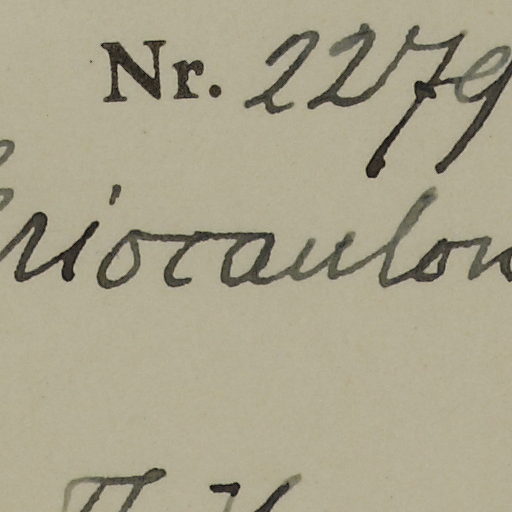 Nr. 2279
Eriocaulon